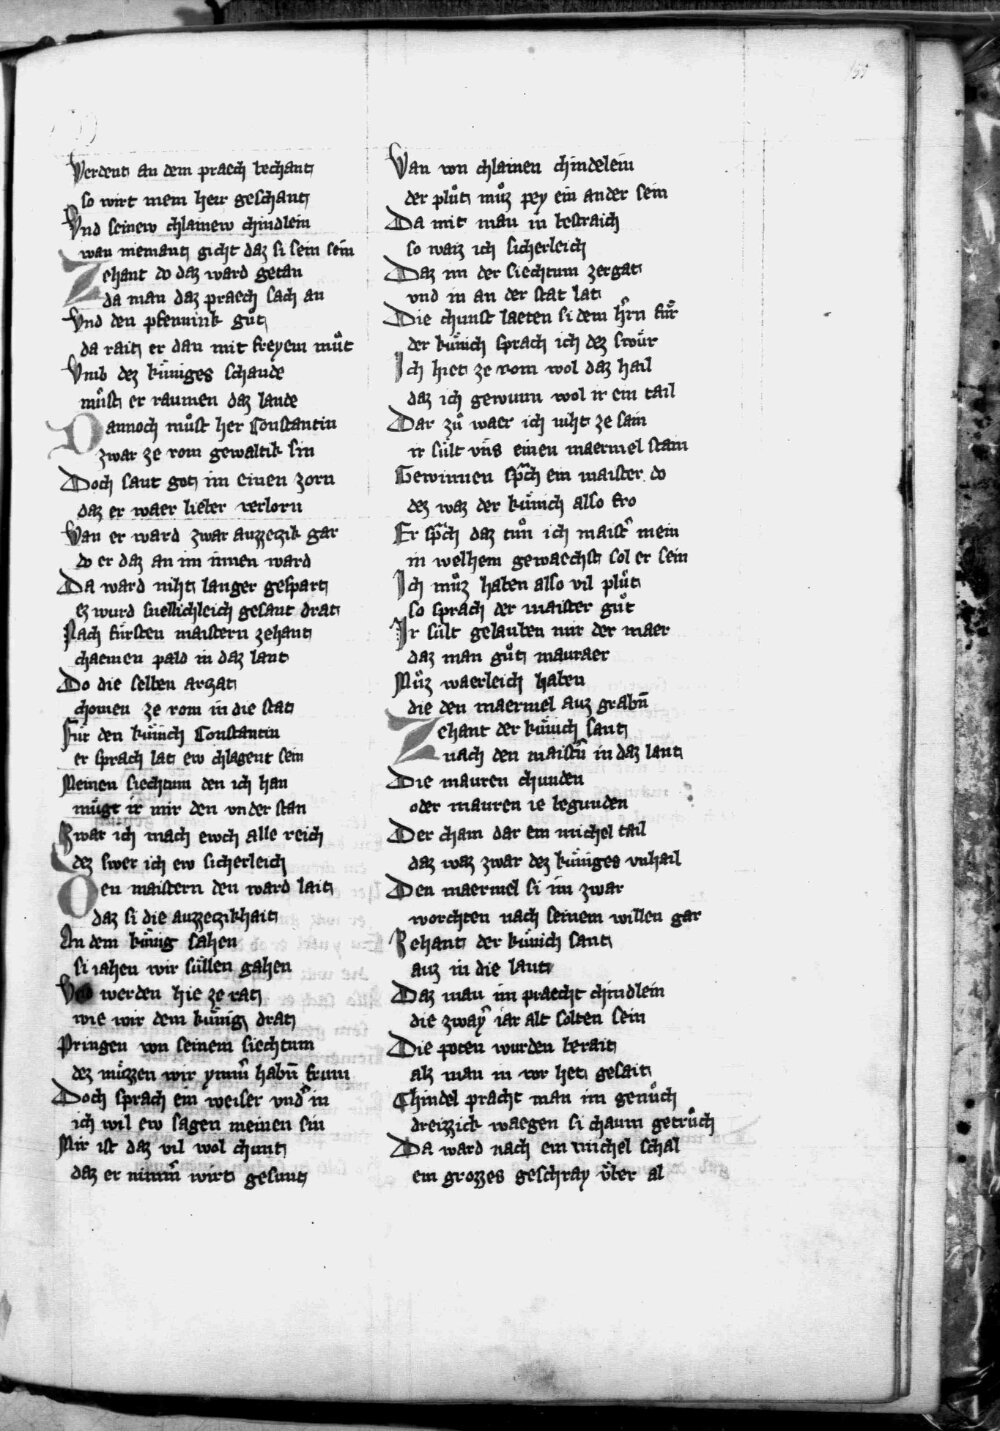 Werdent an dem praech bechant
so wirt mein herr geschant
Vnd seinew chlainew chindlein
wan niemant gicht daz si sein sein
Zehant do daz ward getan
da man daz praech sach an
Vnd den pfennink gůt
da rait er dan mit freyem můt
Vmb dez kůniges schande
můst er raumen daz lande
Dannoch můst her Constantin
zwar ze rom gewaltik sin
Doch sant got im einen zorn
daz er waer lieber verlorn
Wan er ward zwar auzzetzik gar
do er daz an im innen ward
Da ward niht langer gespart
ez wurd snellichleich gesant drat
Nach fůrsten maistern zehant
chaemen pald in daz lant
Do die selben arzat
chomen ze rom in die stat
Für den kůnich Constantin
er sprach lat ew chlagent sein
Meinen siechtum den ich han
můgt ir mir den vnder stan
Zwar ich mach ewch alle reich
dez swer ich ew sicherleich
Den maistern den ward lait
daz si die auzzetzikhait
An dem kůnig sahen
si iahen wir sůllen gahen
werden hie ze rat
wie wir dem kůnig drat
Pringen von seinem siechtum
dez můzzen wir ymm̄ habn̄ frum
Doch sprach ein weiser vnd̄ in
ich wil ew sagen meinen sin
Mir ist daz vil wol chunt
daz er nimm̄ wirt gesunt
Van von chlainen chindelein
der plůt můz pey ein ander sein
Da mit man in bestraich
so waiz ich sicherleich
Daz im der siechtum zergat
vnd in an der stat lat
Die chunst laeten si dem h̄rn fůr
der kůnich sprach ich dez swůr
Ich hiet ze rom wol daz hail
daz ich gewunn wol ir ein tail
Dar zů waer ich niht ze sain
ir sůlt vns einen maermel stain
Gewinnen sp̄ch ein maister do
dez waz der kůnich also fro
Er sp̄ch daz tůn ich maist̄ mein
in welhem gewaechst sol er sein
Ich můz haben also vil plůt
so sprach der maister gůt
Ir sůlt gelauben mir der maer
daz man gůt mauraer
Můz waerleich haben
die den maermel auz grabn̄
Zehant der kůnich sant
nach den maist̄n in daz lant
Die mauren chunden
oder mauren ie begunden
Der cham dar ein michel tail
daz waz zwar dez kůniges vnhail
Den maermel si im zwar
worchten nach seinem willen gar
Zehant der kůnich sant
auz in die lant
Daz man im praecht chindlein
die zwaȳ iar alt solten sein
Die poten wurden berait
alz man in vor het gesait
Chindel pracht man im genůch
dreizzick waegen si chaum getrůch
Da ward nach ein michel schal
ein grozzes geschray vber al